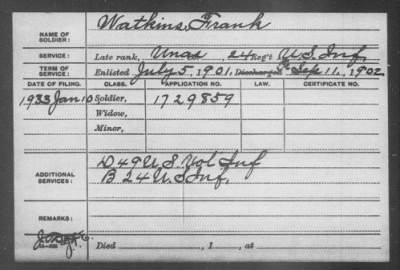 NAME OF SOLDIER: Watkins, Frank
SERVICE: Late rank, Unas , 24 Reg't U.S. Inf.
TERM OF SERVICE: Enlisted July 5, 1901, Discharged Sep 11, 1902
DATE OF FILING. CLASS. APPLICATION NO. LAW. CERTIFICATE NO.
1933 Jan 10 Soldier, 1729859
Widow,
Minor,
ADDITIONAL SERVICES: D 49 U S Vol Inf
B 24 U. S Inf.
REMARKS:
Died , 1 , at